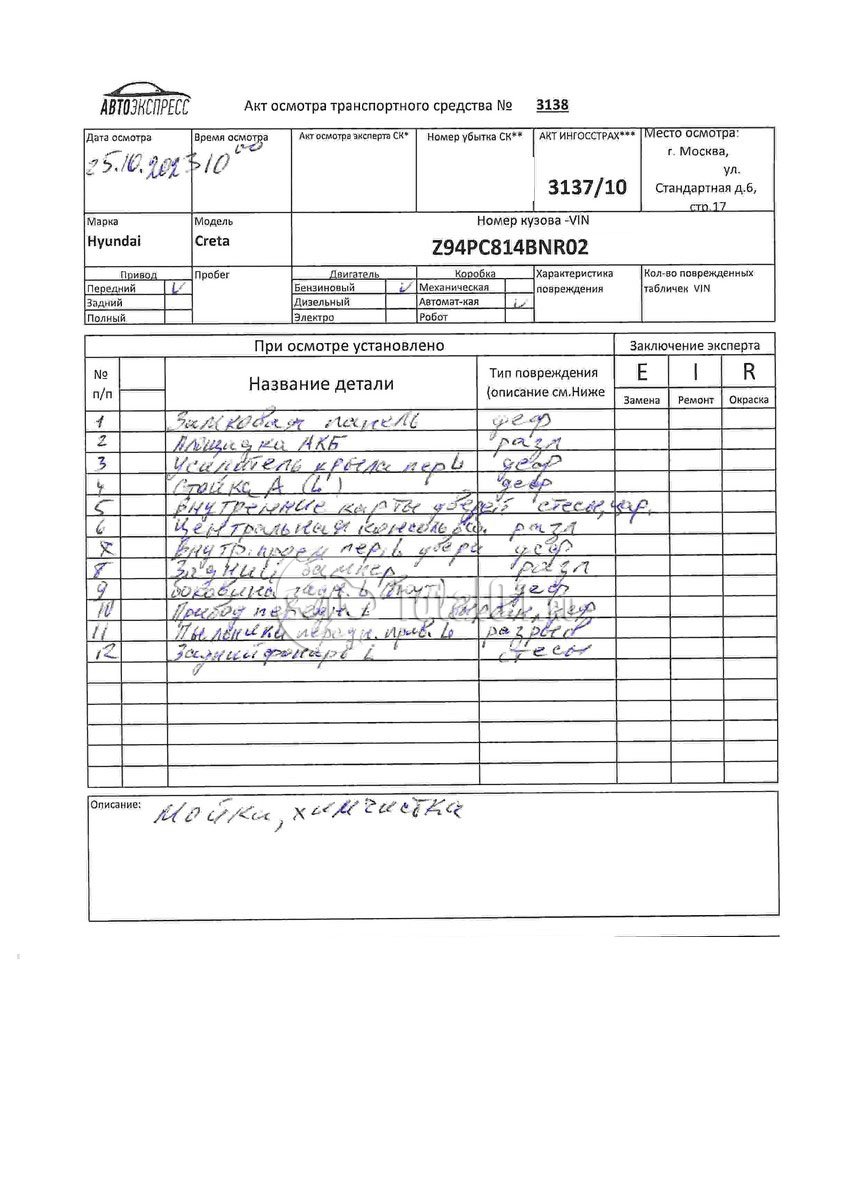 АВТОЭКСПРЕСС
Акт осмотра транспортного средства № 3138
Дата осмотра Время осмотра Акт осмотра эксперта СК* Номер убытка СК** АКТ ИНГОССТРАХ*** Место осмотра:
25.10.2023 10 00 3137/10 г. Москва,
ул.
Стандартная д.6,
стр.17
Марка Модель Номер кузова -VIN
Hyundai Creta Z94PC814BNR02
Привод Пробег Двигатель Коробка Характеристика повреждения Кол-во поврежденных табличек VIN
Передний V Бензиновый V Механическая
Задний Дизельный Автомат-кая V
Полный Электро Робот
При осмотре установлено Заключение эксперта
№ п/п Название детали Тип повреждения (описание см.Ниже E I R
Замена Ремонт Окраска
1 Замковая панель деф
2 Площадка АКБ разл
3 Усилитель крыла пер L деф
4 Стойка А (L) деф
5 внутренние карты дверей стесы, цар.
6 Центральная консоль разл
7 внутр. проем пер. L двери деф
8 Задний бампер разл
9 боковина задн. L (внут) деф
10 Привод передн. L деф
11 Пыльники передн. прив. L разрыв
12 Задний фонарь L стесы
Описание: Мойка, химчистка